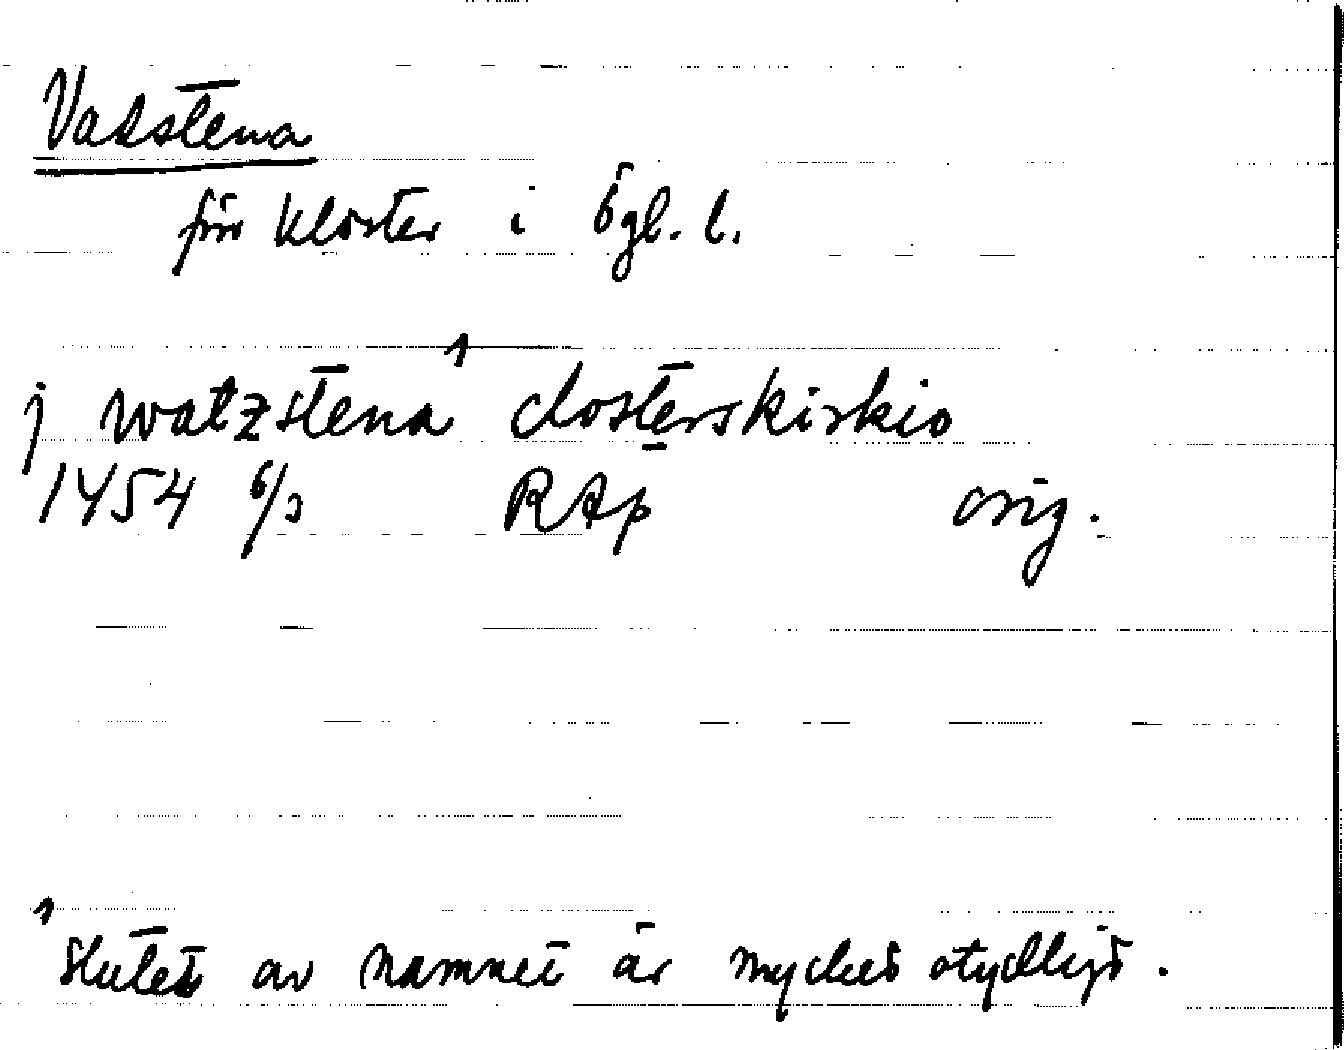 Vadstena
för kloster i Ögl. l.
j watzstena¹ closterskirkio
1454 6/3 RAp orig.
¹ slutet av namnet är mycket otydligt.